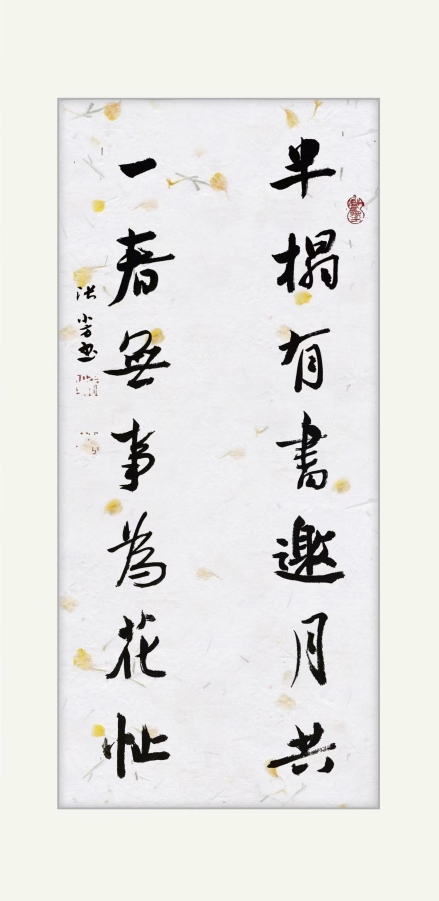 半榻有書邀月共
一春無事為花忙